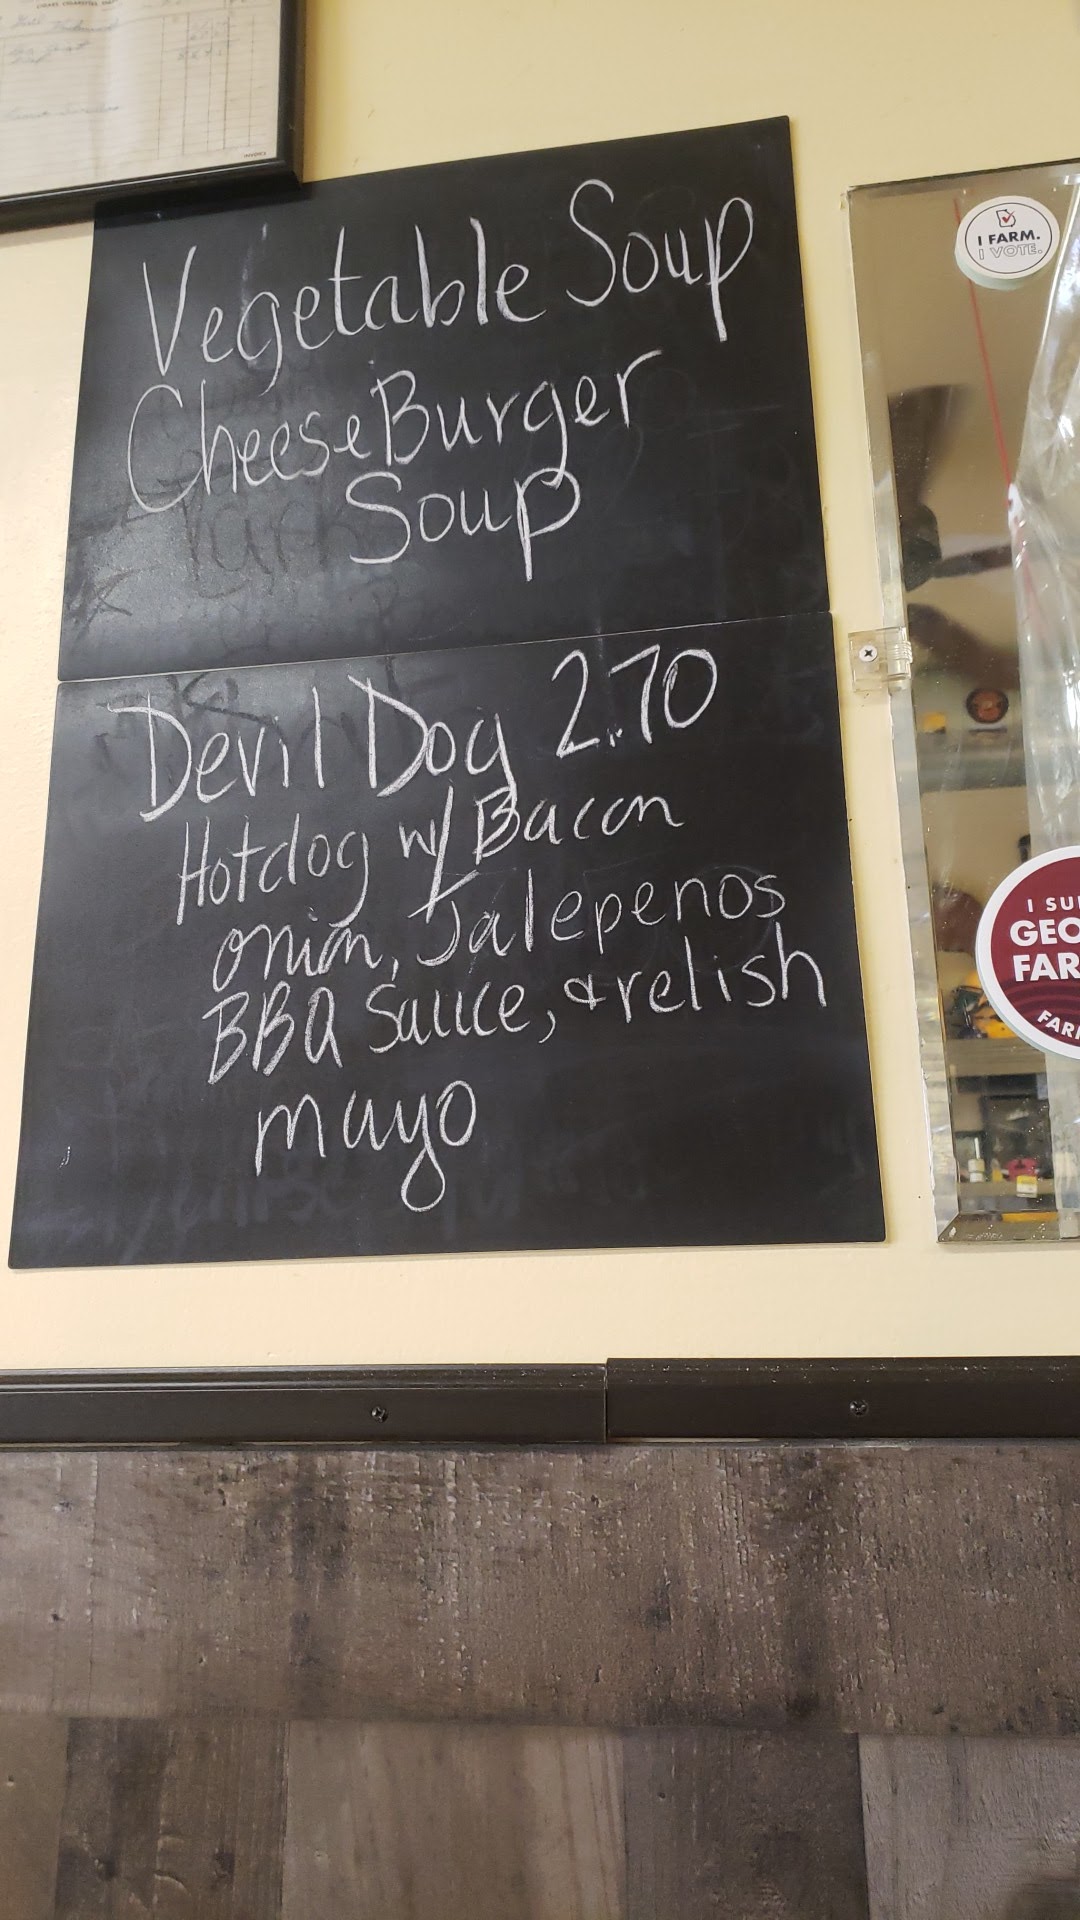 Vegetable Soup
CheeseBurger
Soup
Devil Dog 2.70
Hotdog w/ Bacon
onion, Jalepenos
BBQ Sauce, & relish
mayo
I FARM.
I VOTE.
I SU
GEO
FAR
FAR